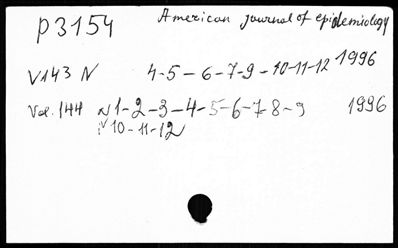 P3154 American journal of epidemiology
V143 N 4-5-6-7-9-10-11-12 1996
Vol. 144 N1-2-3-4-5-6-7-8-9 1996
N10-11-12